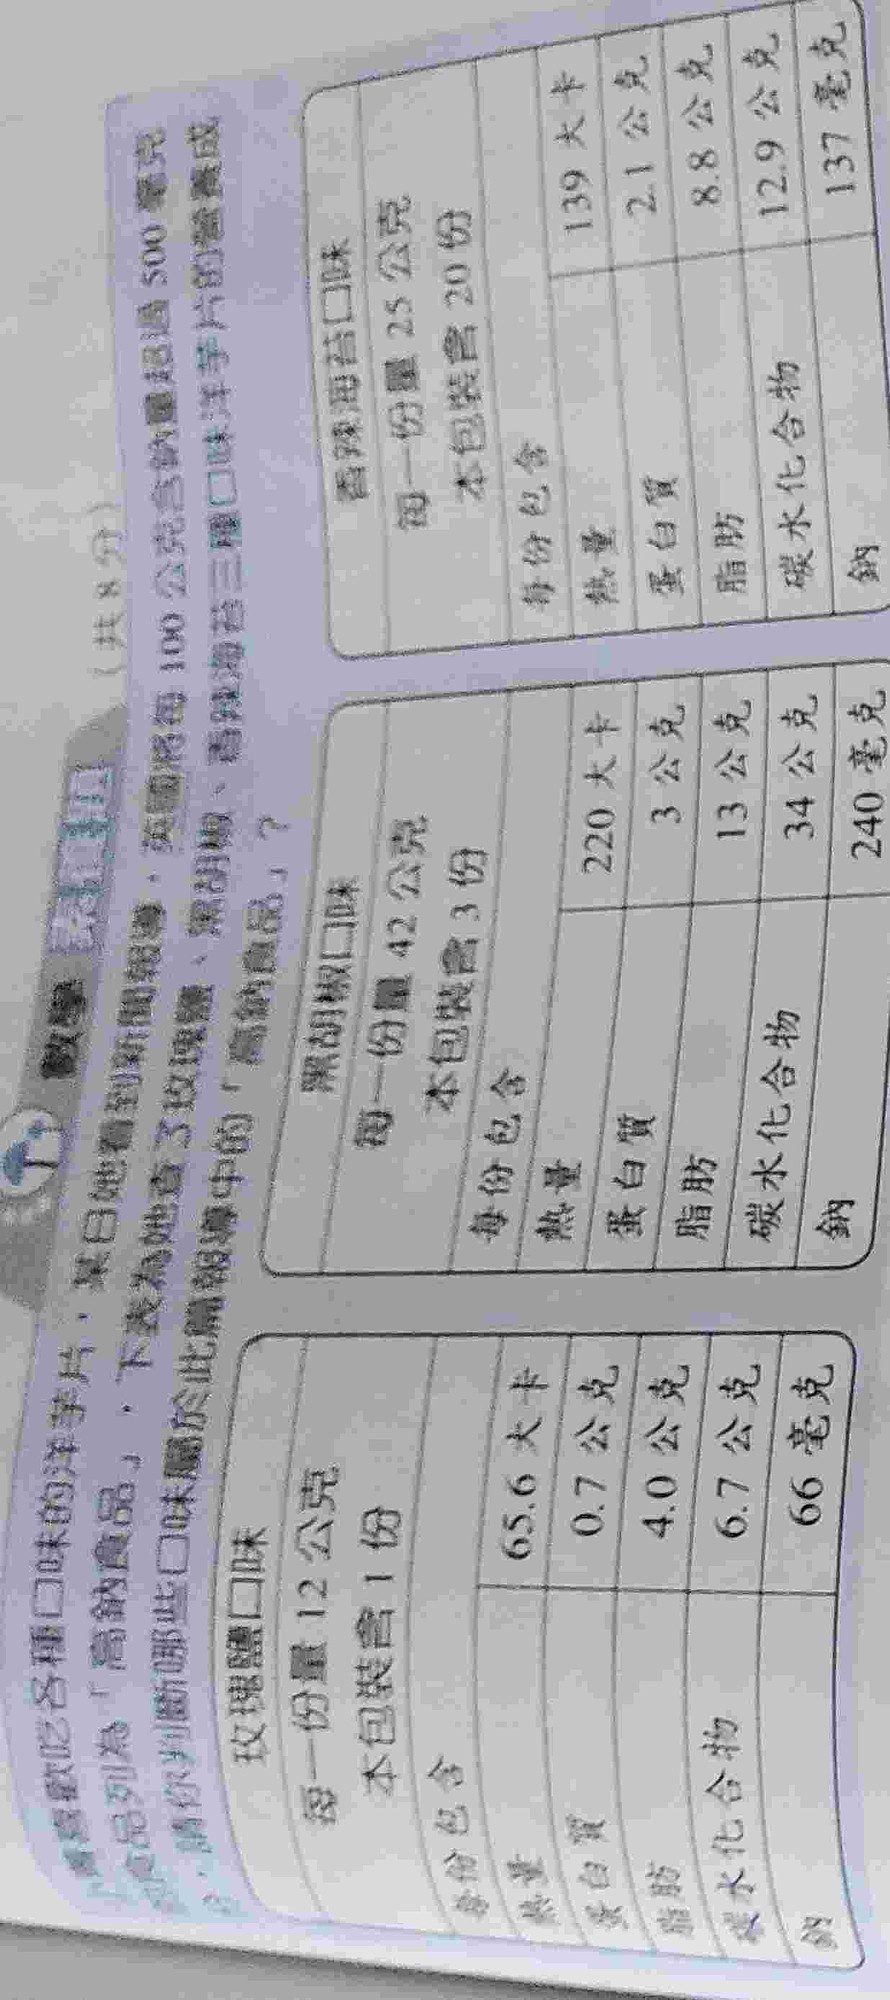 數學 素養
（共 8 分）
喜歡吃各種口味的洋芋片，某日她看到新聞報導，英國將每 100 公克含鈉量超過 500 毫克
食品列為「高鈉食品」，下表為她查了玫瑰鹽、黑胡椒、香辣海苔三種口味洋芋片的營養成
，請你判斷哪些口味屬於此篇報導中的「高鈉食品」？
玫瑰鹽口味
每一份量 12 公克
本包裝含 1 份
每份包含
熱量 65.6 大卡
蛋白質 0.7 公克
脂肪 4.0 公克
碳水化合物 6.7 公克
鈉 66 毫克
黑胡椒口味
每一份量 42 公克
本包裝含 3 份
每份包含
熱量 220 大卡
蛋白質 3 公克
脂肪 13 公克
碳水化合物 34 公克
鈉 240 毫克
香辣海苔口味
每一份量 25 公克
本包裝含 20 份
每份包含
熱量 139 大卡
蛋白質 2.1 公克
脂肪 8.8 公克
碳水化合物 12.9 公克
鈉 137 毫克